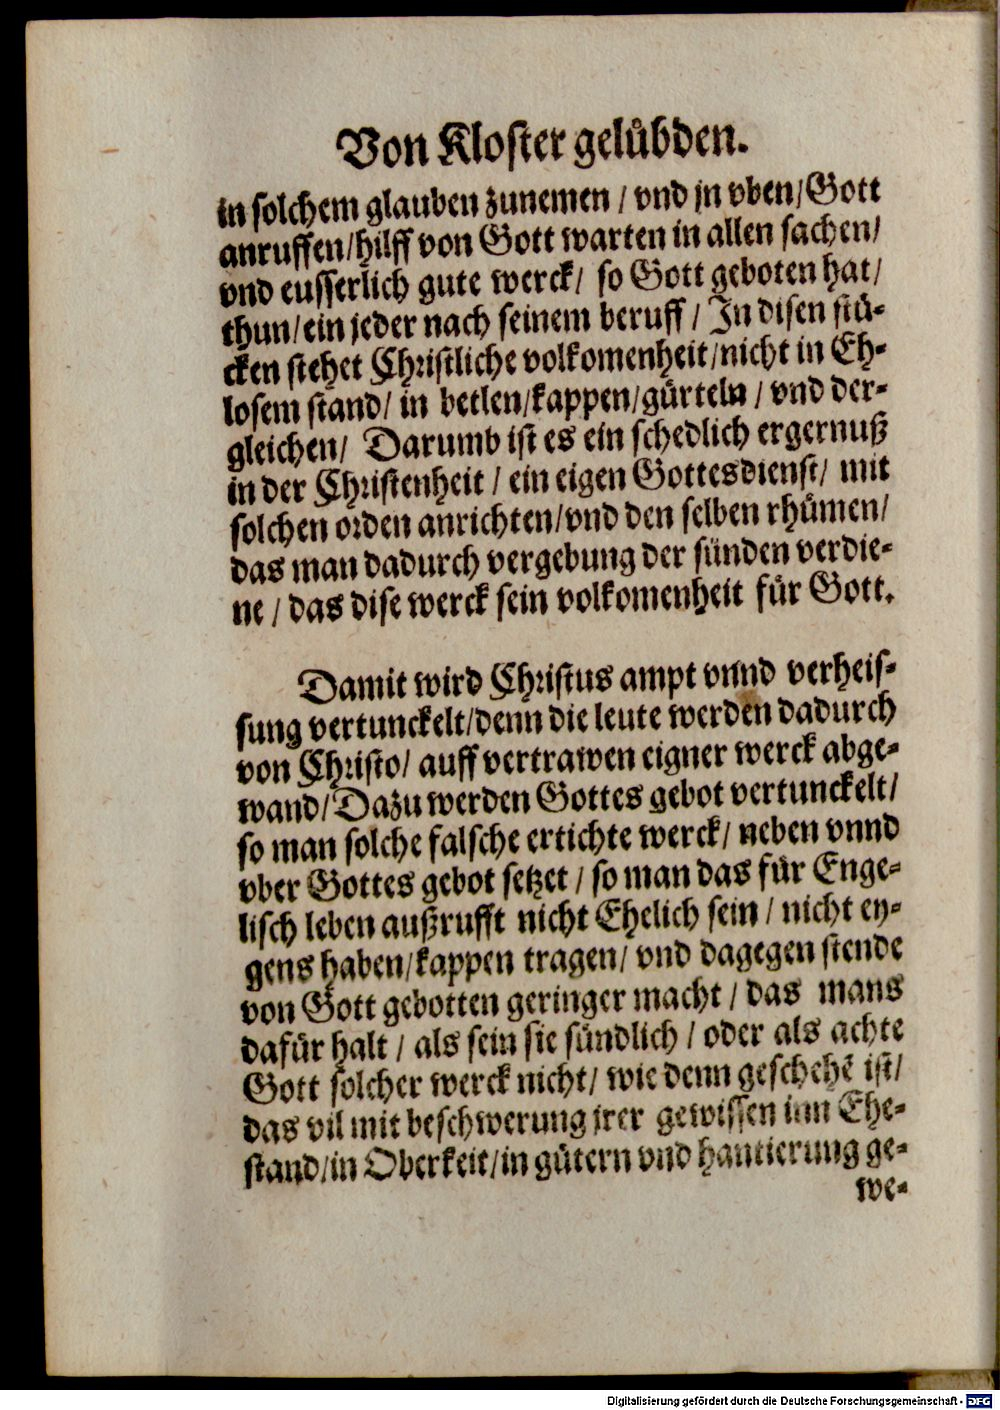 Von Kloster gelübden.
in solchem glauben zunemen / vnd jn vben/Gott
anruffen/hilff von Gott warten in allen sachen/
vnd eusserlich gute werck/ so Gott geboten hat/
thun/ein jeder nach seinem beruff / In disen stü-
cken stehet Christliche volkomenheit/nicht in Eh-
losem stand/ in betlen/kappen/gürteln / vnd der-
gleichen/ Darumb ist es ein schedlich ergernuß
in der Christenheit / ein eigen Gottesdienst/ mit
solchen orden anrichten/vnd den selben rhümen/
das man dadurch vergebung der sünden verdie-
ne / das dise werck sein volkomenheit für Gott.
Damit wird Christus ampt vnnd verheis-
sung vertunckelt/denn die leute werden dadurch
von Christo/ auff vertrawen eigner werck abge-
wand/Dazu werden Gottes gebot vertunckelt/
so man solche falsche ertichte werck/ neben vnnd
vber Gottes gebot setzet / so man das für Enge-
lisch leben außrufft nicht Ehelich sein / nicht ey-
gens haben/kappen tragen/ vnd dagegen stende
von Gott gebotten geringer macht / das mans
dafür halt / als sein sie sündlich / oder als achte
Gott solcher werck nicht/ wie denn geschehē ist/
das vil mit beschwerung jrer gewissen inn Ehe-
stand/in Oberkeit/in gütern vnd hantierung ge-
we-
Digitalisierung gefördert durch die Deutsche Forschungsgemeinschaft - DFG